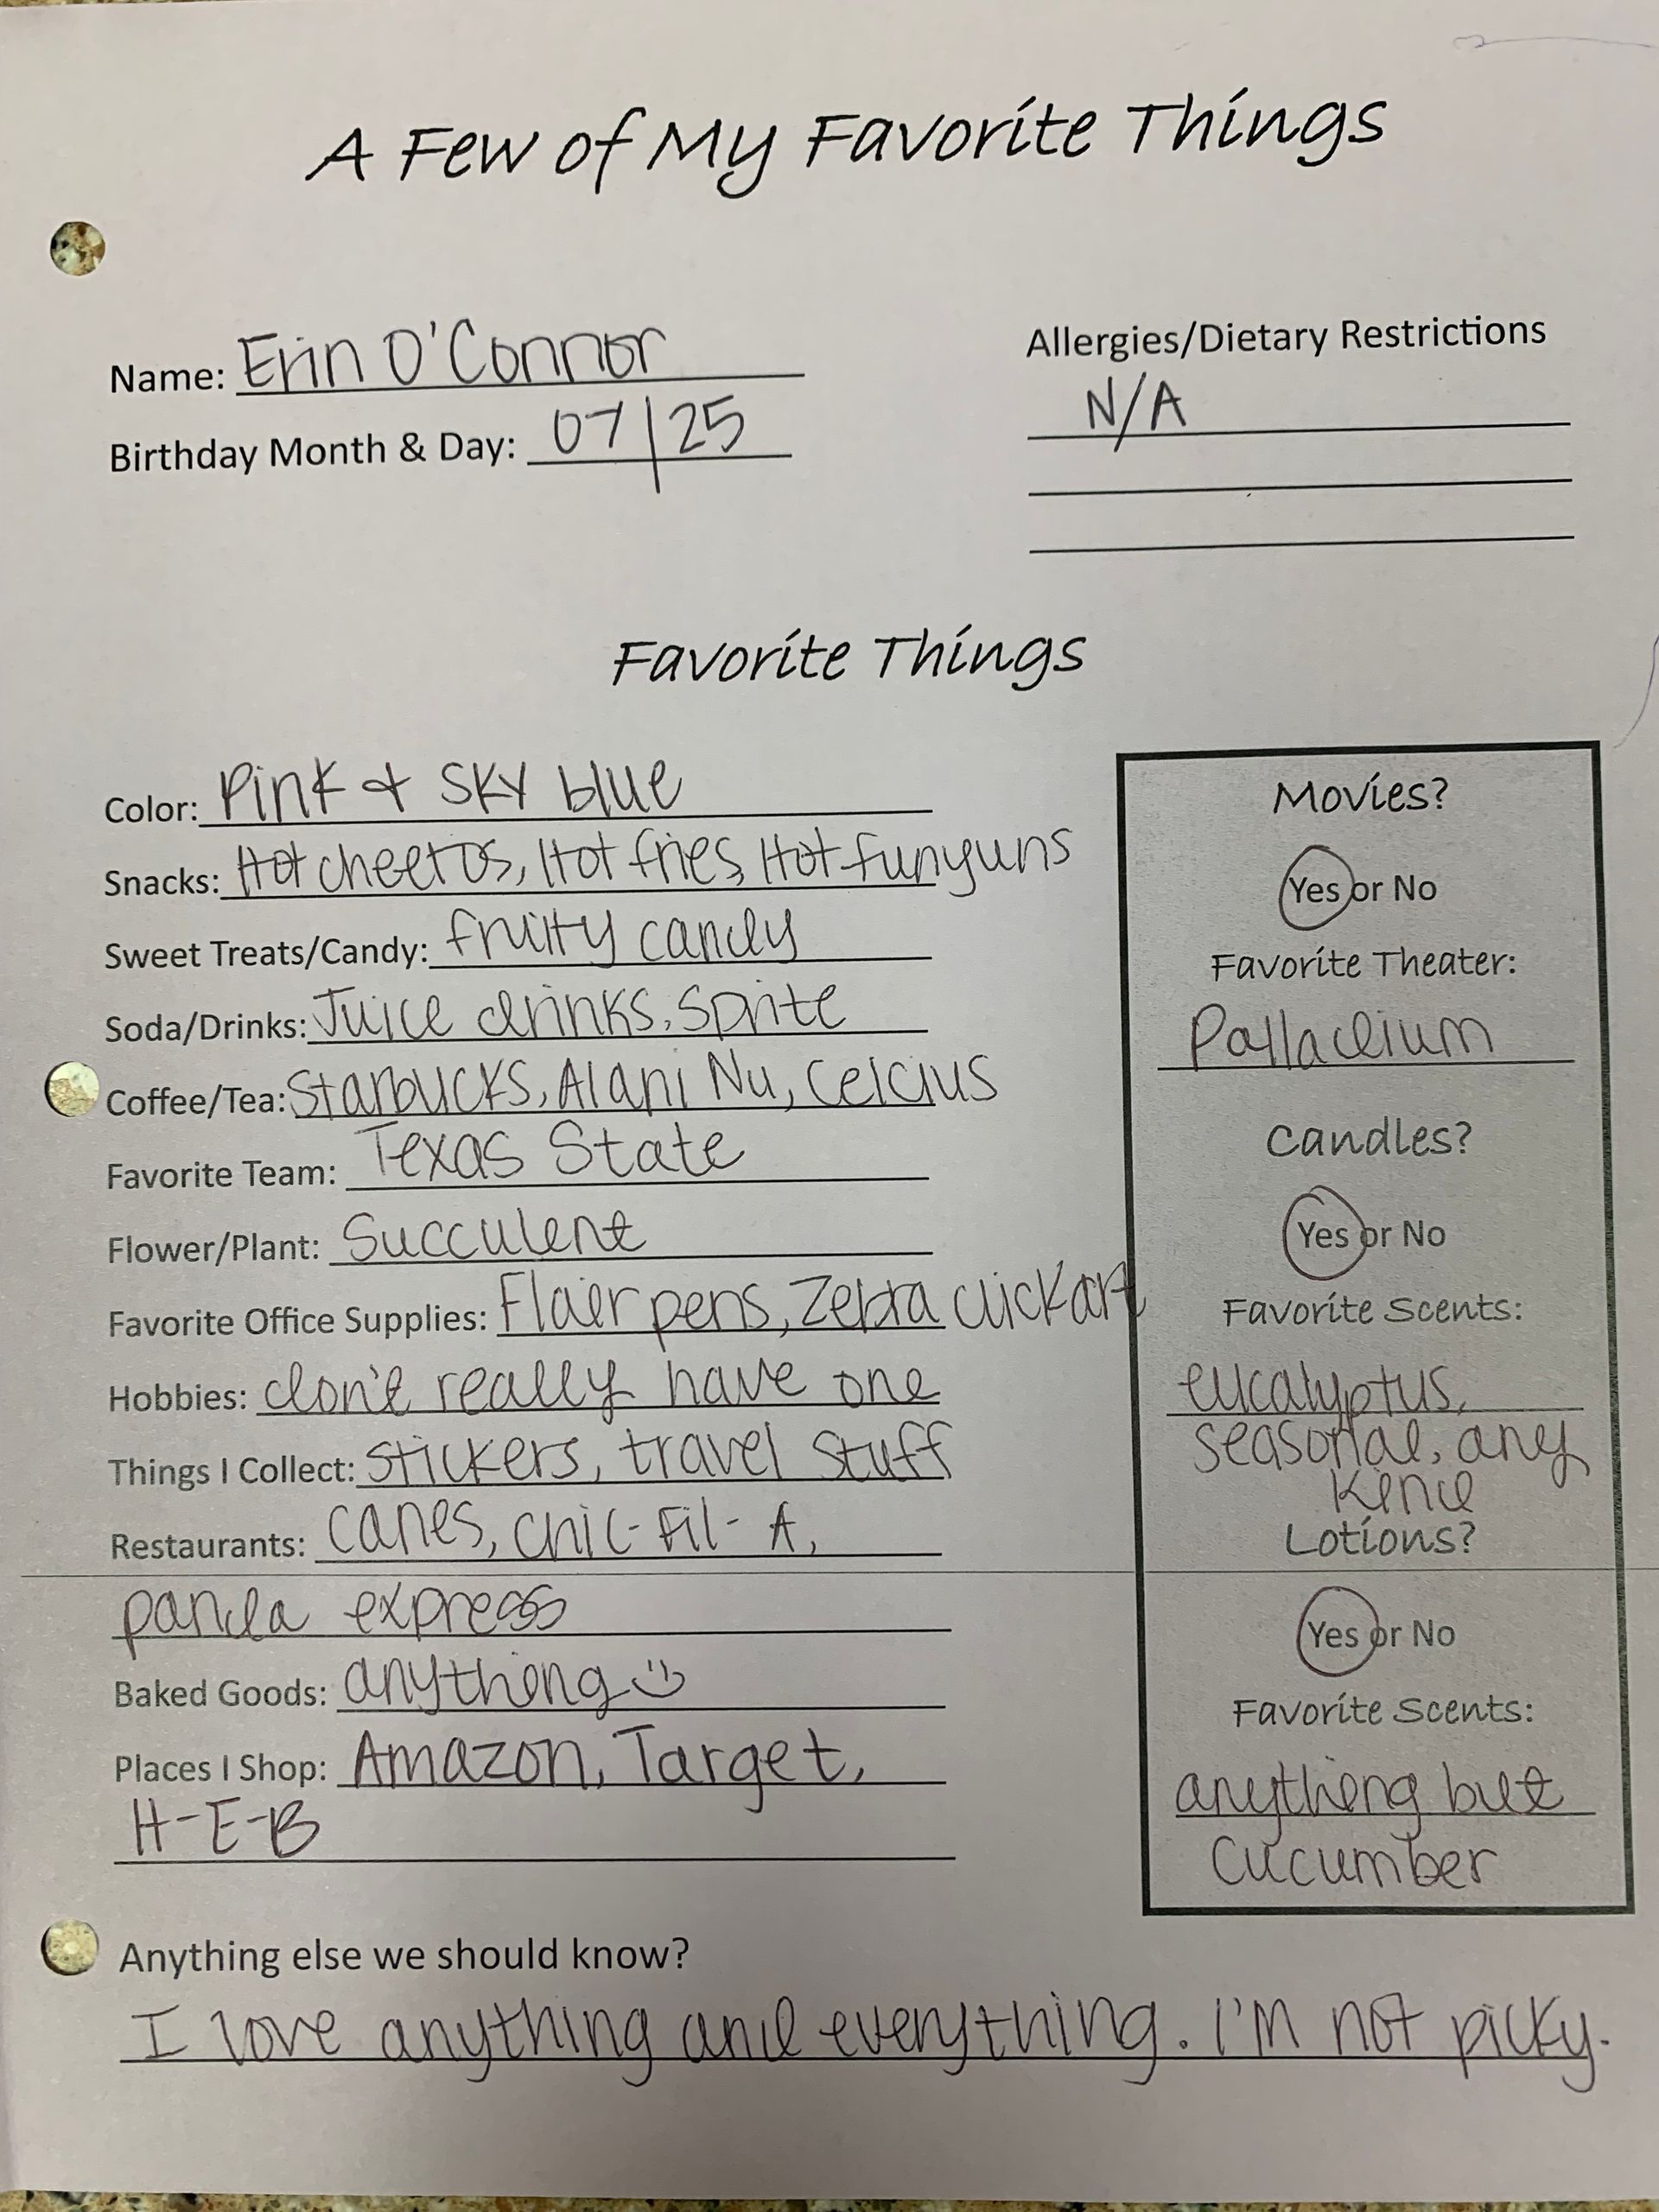 A Few of My Favorite Things
Name: Erin O'Connor
Birthday Month & Day: 07/25
Allergies/Dietary Restrictions
N/A
Favorite Things
Color: Pink & sky blue
Snacks: Hot cheetos, Hot fries, Hot funyuns
Sweet Treats/Candy: fruity candy
Soda/Drinks: Juice drinks, Sprite
Coffee/Tea: Starbucks, Alani Nu, Celcius
Favorite Team: Texas State
Flower/Plant: Succulent
Favorite Office Supplies: Flair pens, Zebra clickart
Hobbies: don't really have one
Things I Collect: stickers, travel stuff
Restaurants: canes, chic-Fil-A,
panda express
Baked Goods: anything
Places I Shop: Amazon, Target,
H-E-B
Movies?
Yes or No
Favorite Theater:
Palladium
Candles?
Yes or No
Favorite Scents:
eucalyptus,
seasonal, any
kind
Lotions?
Yes or No
Favorite Scents:
anything but
cucumber
Anything else we should know?
I love anything and everything. I'm not picky.